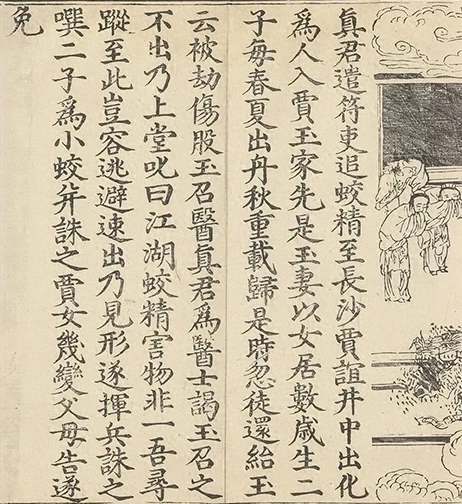 真君遣符吏追蛟精至長沙賈誼井中出化
爲人入賈玉家先是玉妻以女居數歲生二
子每春夏出舟秋重載歸是時忽徒還紿玉
云被劫傷股玉召醫真君爲醫士謁玉召之
不出乃上堂叱曰江湖蛟精害物非一吾尋
蹤至此豈容逃避速出乃見形遂揮兵誅之
噀二子爲小蛟并誅之賈女幾變父母告遂
免